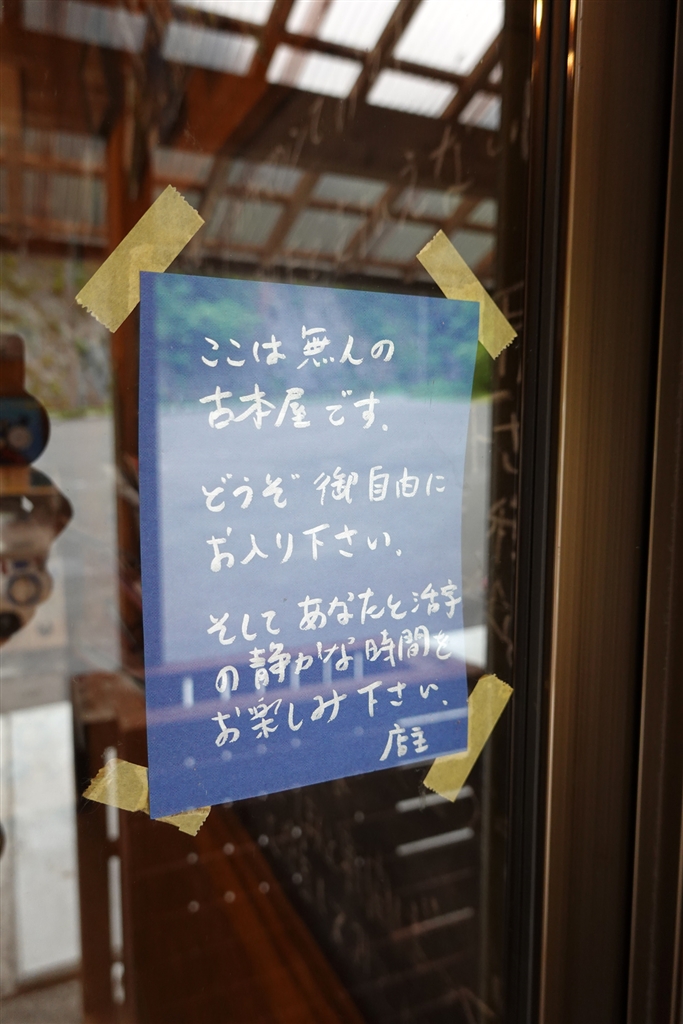 ここは無人の
古本屋です。
どうぞ御自由に
お入り下さい。
そして あなたと活字
の静かな時間を
お楽しみ下さい。
店主